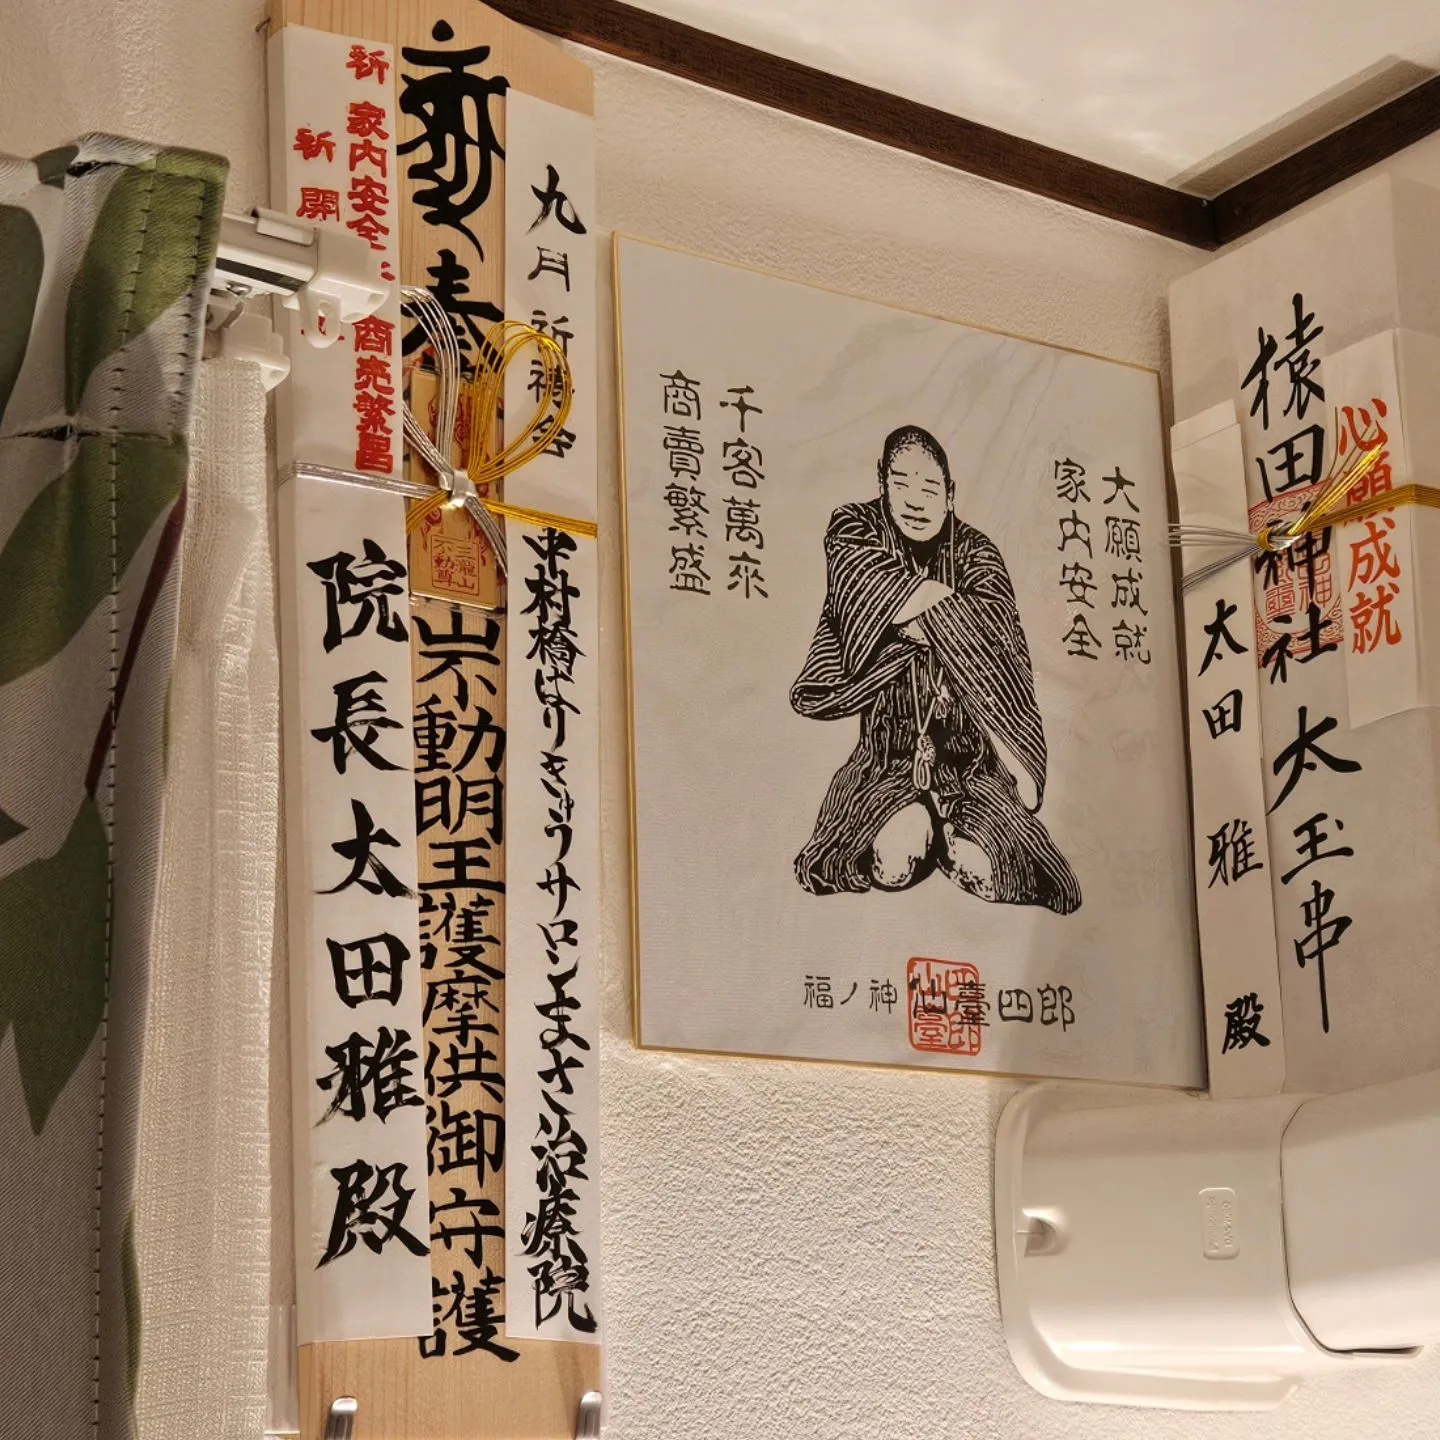 祈 家内安全
商売繁昌
祈 開
院長 太田雅殿
奉
不動明王護摩供御守護
三瀧山
不動尊
九月祈祷会
中村橋はりきゅうサロンまさ治療院
大願成就
家内安全
千客萬來
商賣繁盛
福ノ神 仙臺四郎
猿田神社 太玉串
心願成就
太田雅殿